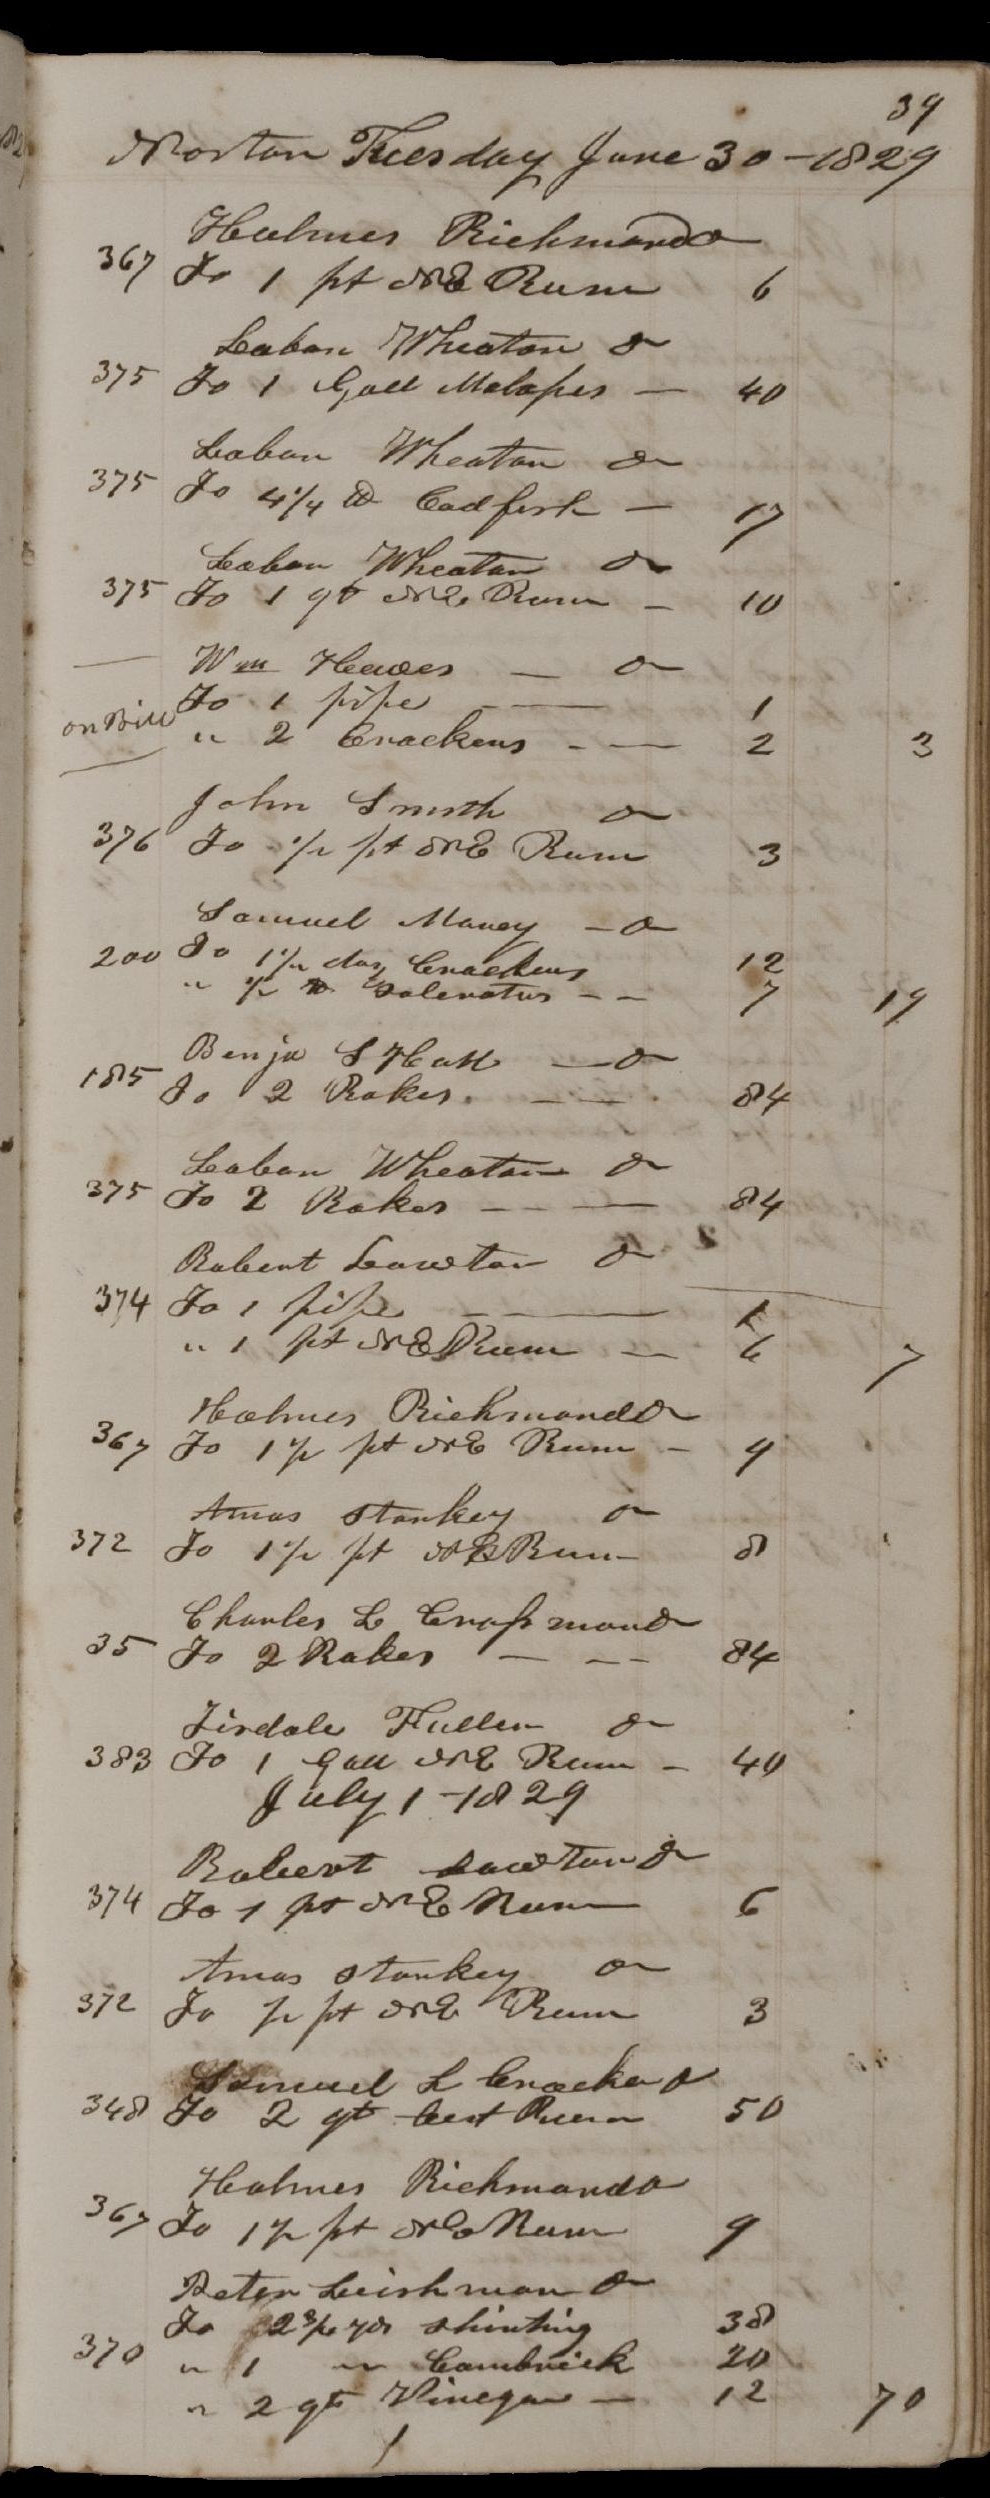 39
Norton Tuesday June 30 - 1829
Holmes Richmond Dr
367 To 1 pt NE Rum 6
Laban Wheaton Dr
375 To 1 Gall Molasses — 40
Laban Wheaton Dr
375 To 4 1/4 lb Codfish — 17
Laban Wheaton Dr
375 To 1 qt NE Rum — 10
Wm Hewes — Dr
To 1 pipe — 1
on Bill " 2 Crackers - — 2 3
John Smith Dr
376 To 1/2 pt NE Rum 3
Samuel Maney — Dr
200 To 1 1/2 doz Crackers 12
" 1/2 lb Saleratus - - 7 19
Benja S Hall — Dr
185 To 2 Rakes. — — 84
Laban Wheaton Dr
375 To 2 Rakes - — — 84
Robert Lawton Dr
374 To 1 pipe — 1
" 1 pt NE Rum — 6 7
Holmes Richmond Dr
367 To 1 1/2 pt NE Rum - 9
Amos Stankey Dr
372 To 1 1/2 pt NE Rum 8
Charles L Crossman Dr
35 To 2 Rakes — - - 84
Tisdale Fuller Dr
383 To 1 Gall NE Rum - 40
July 1 - 1829
Robert Lawton Dr
374 To 1 pt NE Rum 6
Amos Stankey Dr
372 To 1/2 pt NE Rum 3
Samuel L Crocker Dr
348 To 2 qt best Rum 50
Holmes Richmond Dr
367 To 1 1/2 pt NE Rum 9
Peter Leishman Dr
To 2 3/4 yds shirting 38
370 " 1 " Cambrick 20
" 2 qts Vinegar — 12 70